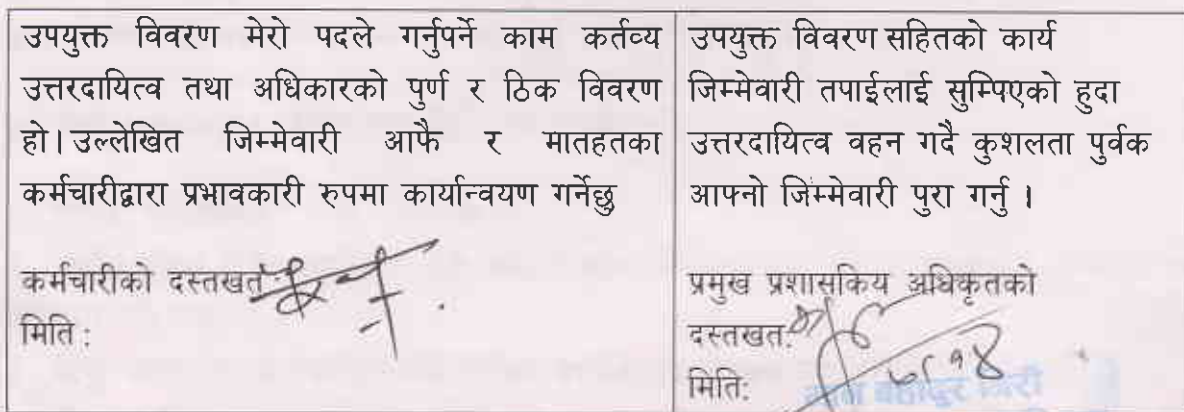 उपयुक्त विवरण मेरो पदले गर्नुपर्ने काम कर्तव्य
उत्तरदायित्व तथा अधिकारको पुर्ण र ठिक विवरण
हो। उल्लेखित जिम्मेवारी आफै र मातहतका
कर्मचारीद्वारा प्रभावकारी रुपमा कार्यान्वयण गर्नेछु
कर्मचारीको दस्तखतः
मिति :
उपयुक्त विवरण सहितको कार्य
जिम्मेवारी तपाईलाई सुम्पिएको हुदा
उत्तरदायित्व वहन गदै कुशलता पुर्वक
आफ्नो जिम्मेवारी पुरा गर्नु ।
प्रमुख प्रशासकिय अधिकृतको
दस्तखत:
मिति: